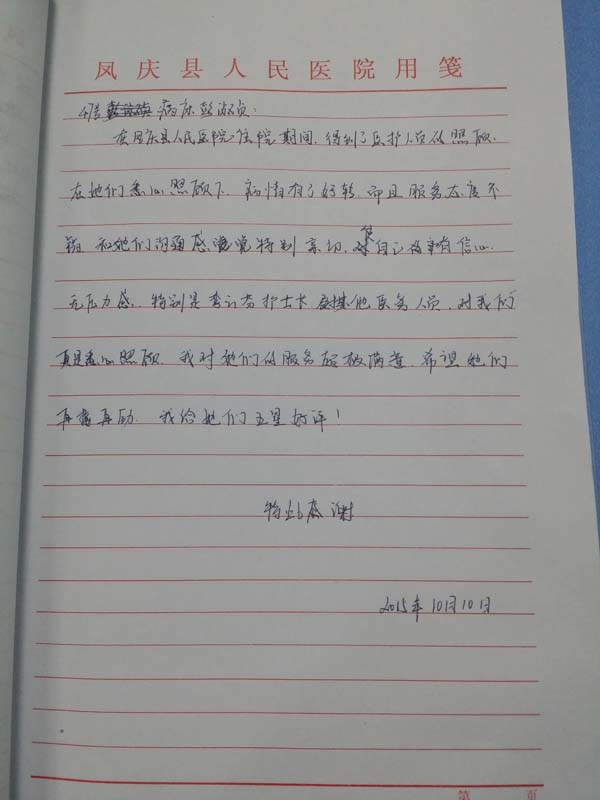 凤庆县人民医院用笺
病床彭淑贞:
在凤庆县人民医院住院期间,得到了医护人员的照顾.
在她们悉心照顾下,病情有了好转,而且服务态度不
错,和她们沟通感觉特别亲切,使自己故事有信心.
无压力感,特别是李 护士长及其他医务人员,对我们
真是悉心照顾,我对她们的服务 极满意,希望她们
再接再励,我给她们五星好评!
特此感谢
2015年10月10日
第 页